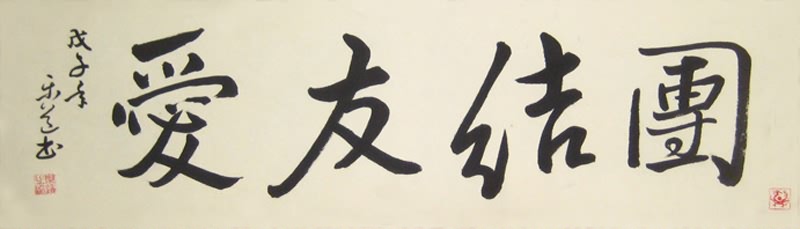 團結友愛
戊子年
书